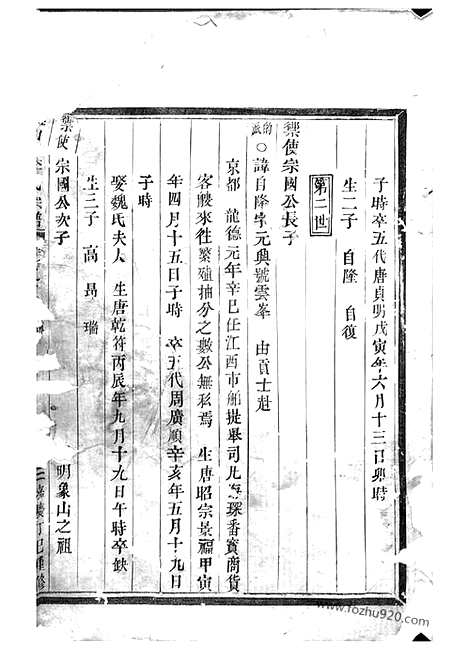 子時卒五代唐貞明戊寅年六月十三日卯時
生二子 自隆 自復
第二世
禦使宗國公長子
諱自隆字元興號雲峯 由貢士赴
京都 龍德元年辛巳任江西市舶提舉司凡海琛番寶商貨
客艘來往繁殖抽分之數公無移焉 生唐昭宗景福甲寅
年四月十五日子時 卒五代周廣順辛亥年五月十九日
子時
娶魏氏夫人 生唐乾符丙辰年九月十九日午時卒缺
生三子 高 昺 瑞
禦使 宗國公次子
明象山之祖
宗譜
丁巳重修
www.fozhu920.com